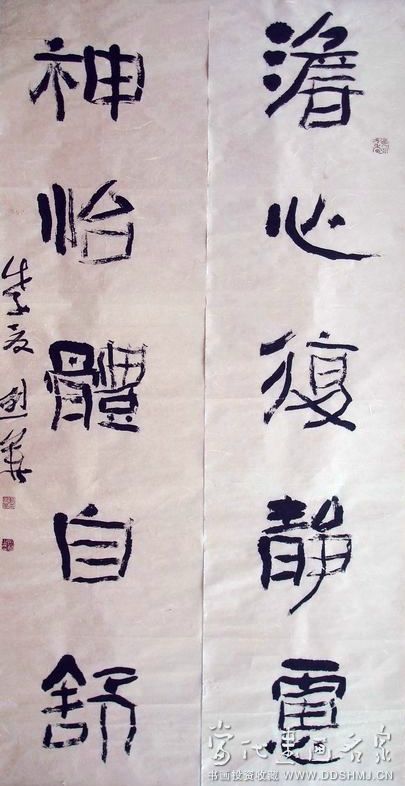 澹心復静慮
神怡體自舒
當代書画名家
书画投资收藏 WWW.DDSHMJ.CN